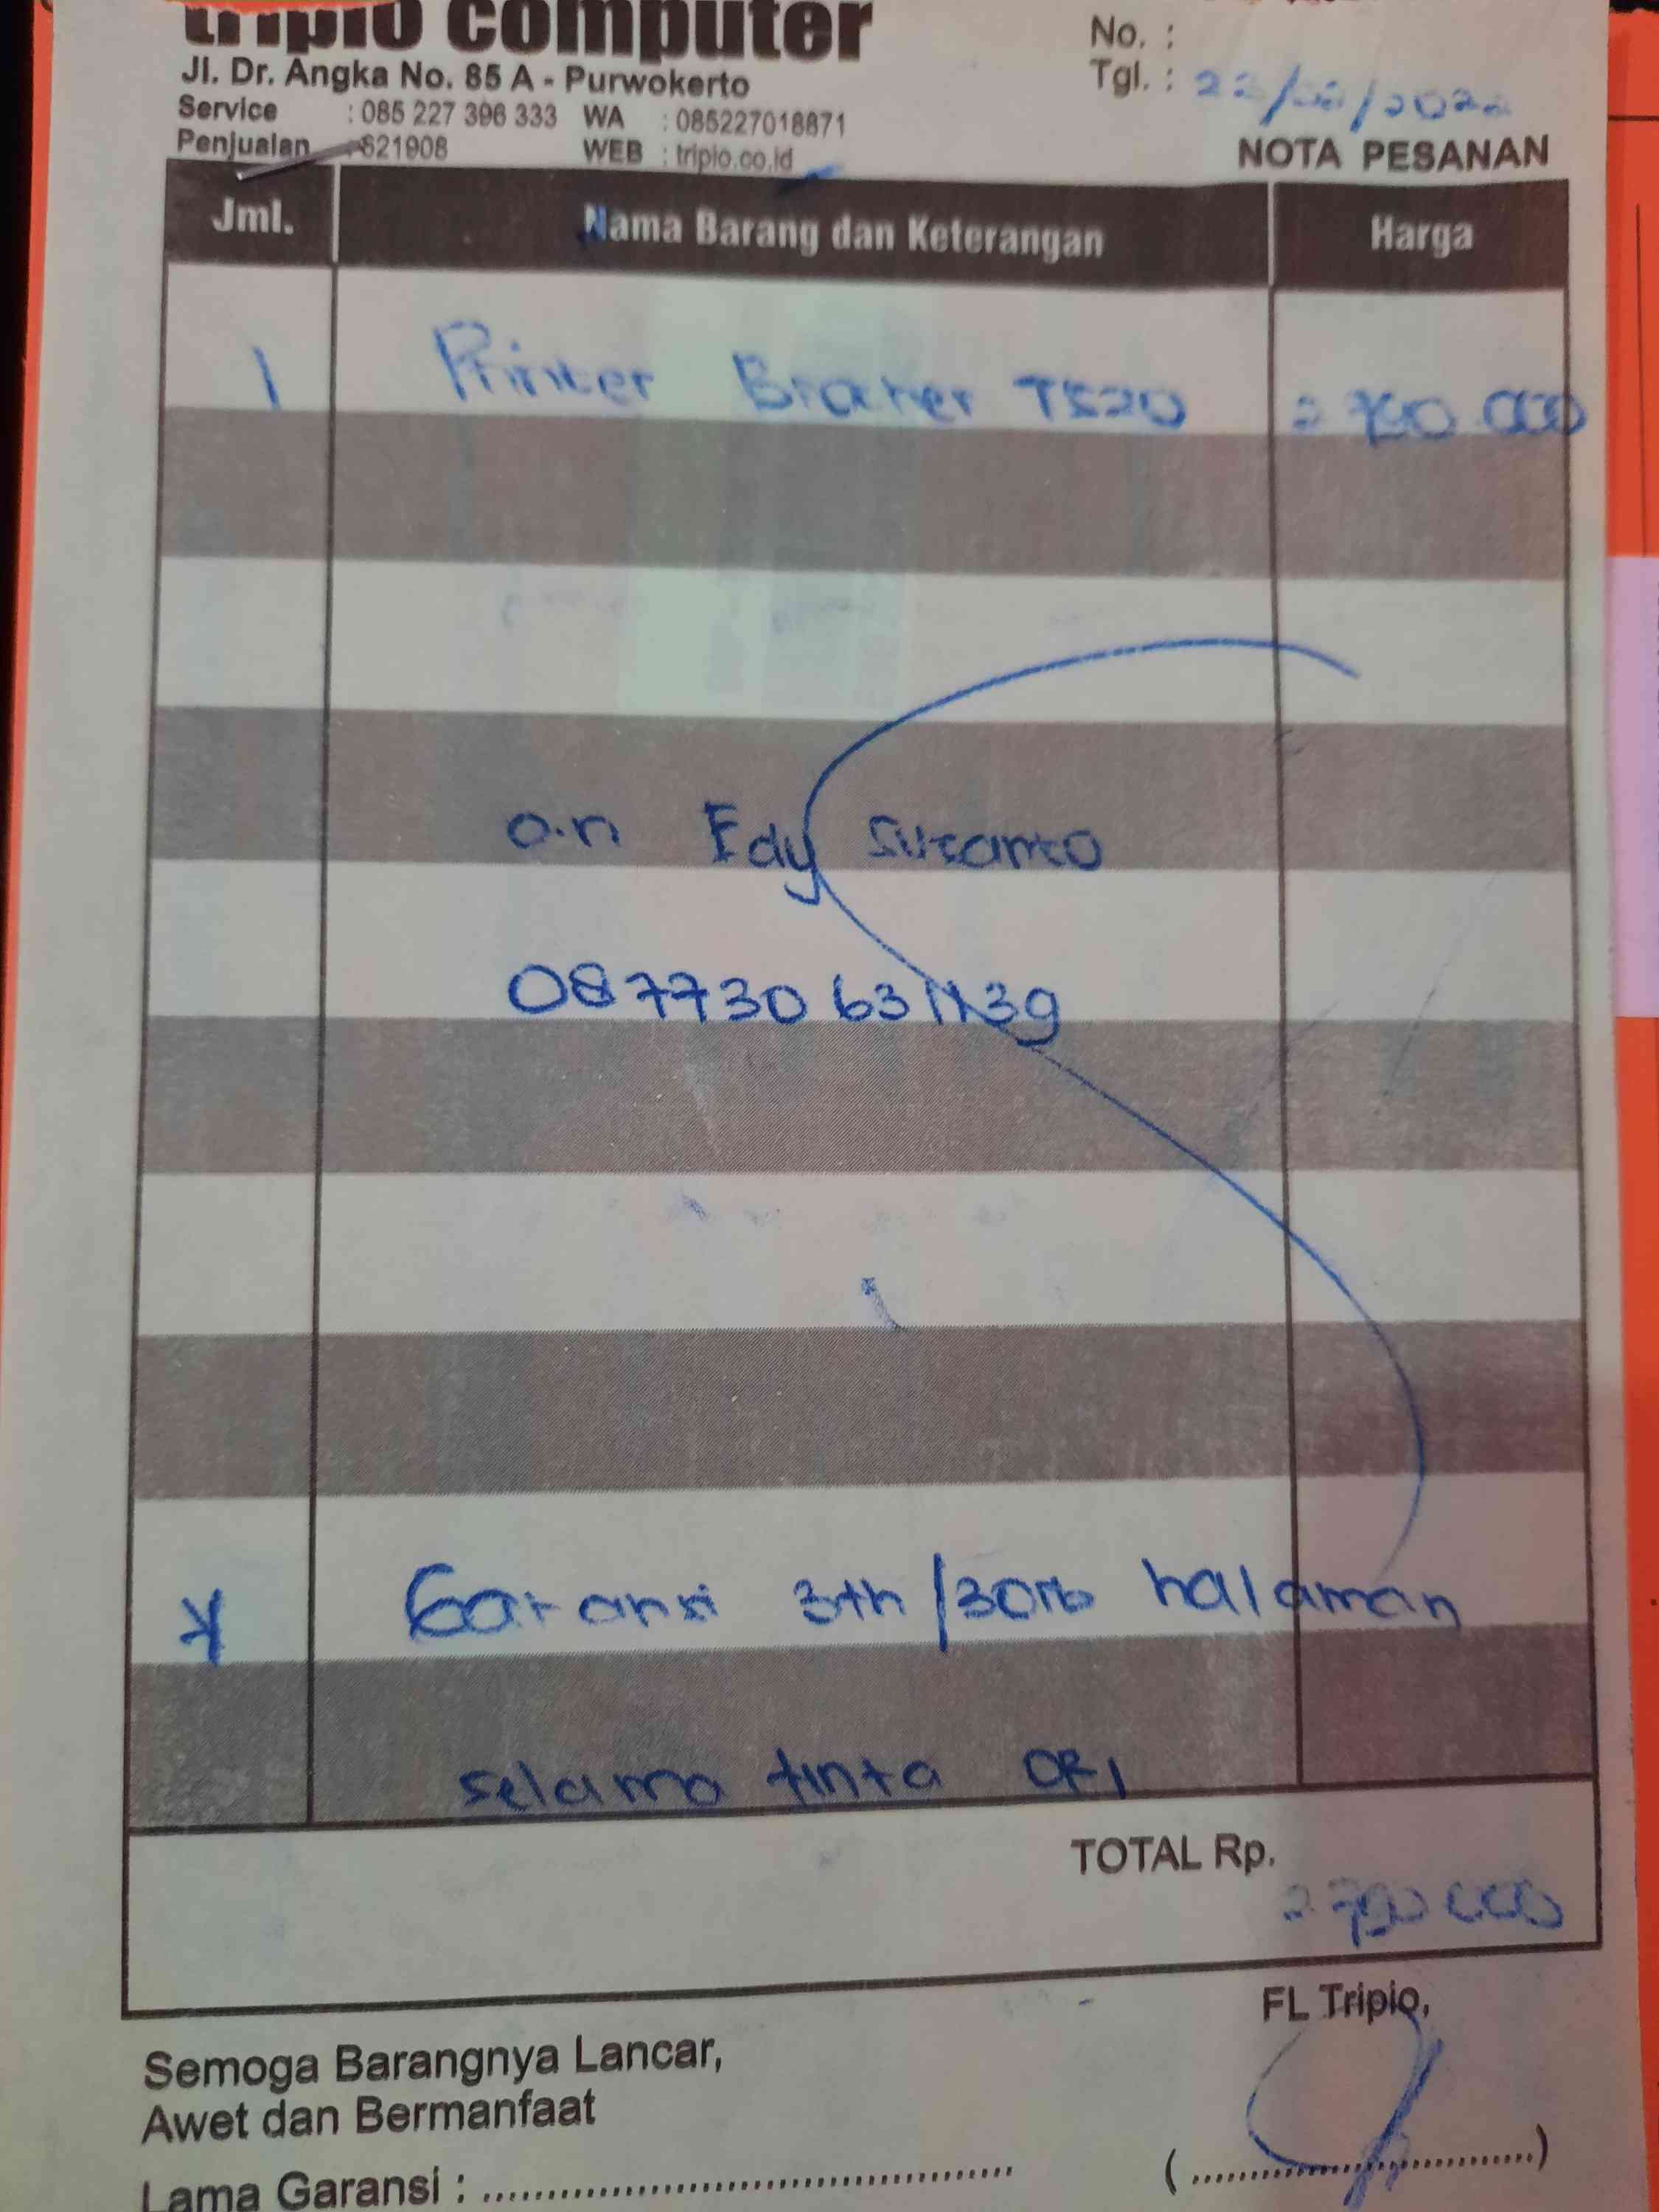 tripio computer
Jl. Dr. Angka No. 85 A - Purwokerto
Service : 085 227 396 333 WA : 085227018871
Penjualan : 621908 WEB : tripio.co.id
No. :
Tgl. : 22/ /2022
NOTA PESANAN
Jml. Nama Barang dan Keterangan Harga
1 Printer Brother T520
a.n Edy Sutanto
087730631139
* Garansi 3th/30rb halaman
selama tinta ORI
TOTAL Rp.
FL Tripio,
Semoga Barangnya Lancar,
Awet dan Bermanfaat
Lama Garansi : ........................................ (..............................)